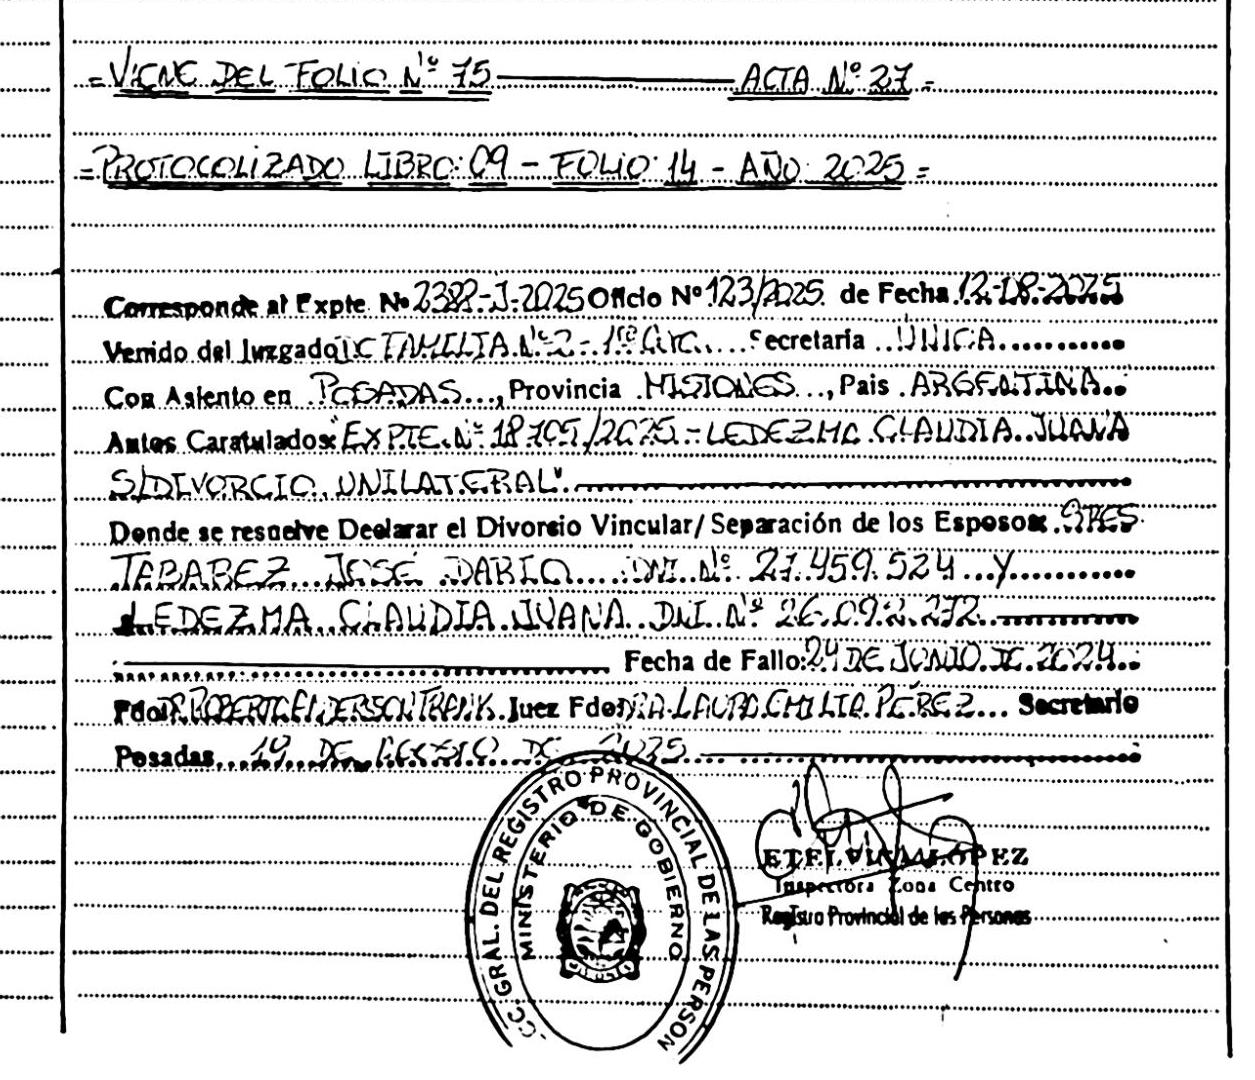 = VIENE DEL FOLIO Nº 75 ACTA Nº 27 =
= PROTOCOLIZADO LIBRO: 09 - FOLIO 14 - AÑO 2025 =
Corresponde al Expte. Nº 2382-J-2025 Oficio Nº 123/2025 de Fecha 12-08-2025
Venido del Juzgado DE FAMILIA Nº 2 - 1ª Circ. Secretaria UNICA
Con Asiento en POSADAS, Provincia MISIONES, Pais ARGENTINA
Autos Caratulados: "EXPTE. Nº 18705/2025 - LEDEZMA CLAUDIA JUANA
S/DIVORCIO UNILATERAL"
Donde se resuelve Declarar el Divorcio Vincular/Separación de los Esposos: SRES
TABAREZ JOSÉ DARIO DNI Nº 27.459.524 Y
LEDEZMA CLAUDIA JUANA DNI Nº 26.092.272
Fecha de Fallo: 24 DE JUNIO DE 2024
Fdo: DR. ROBERTO ANDERSON FRANK Juez Fdo: DRA. LAURA EMILIA PÉREZ Secretario
Posadas, 19 DE AGOSTO DE 2025
GRAL. DEL REGISTRO PROVINCIAL DE LAS PERSON
MINISTERIO DE GOBIERNO
ETELVINA LÓPEZ
Inspectora Zona Centro
Registro Provincial de las Personas